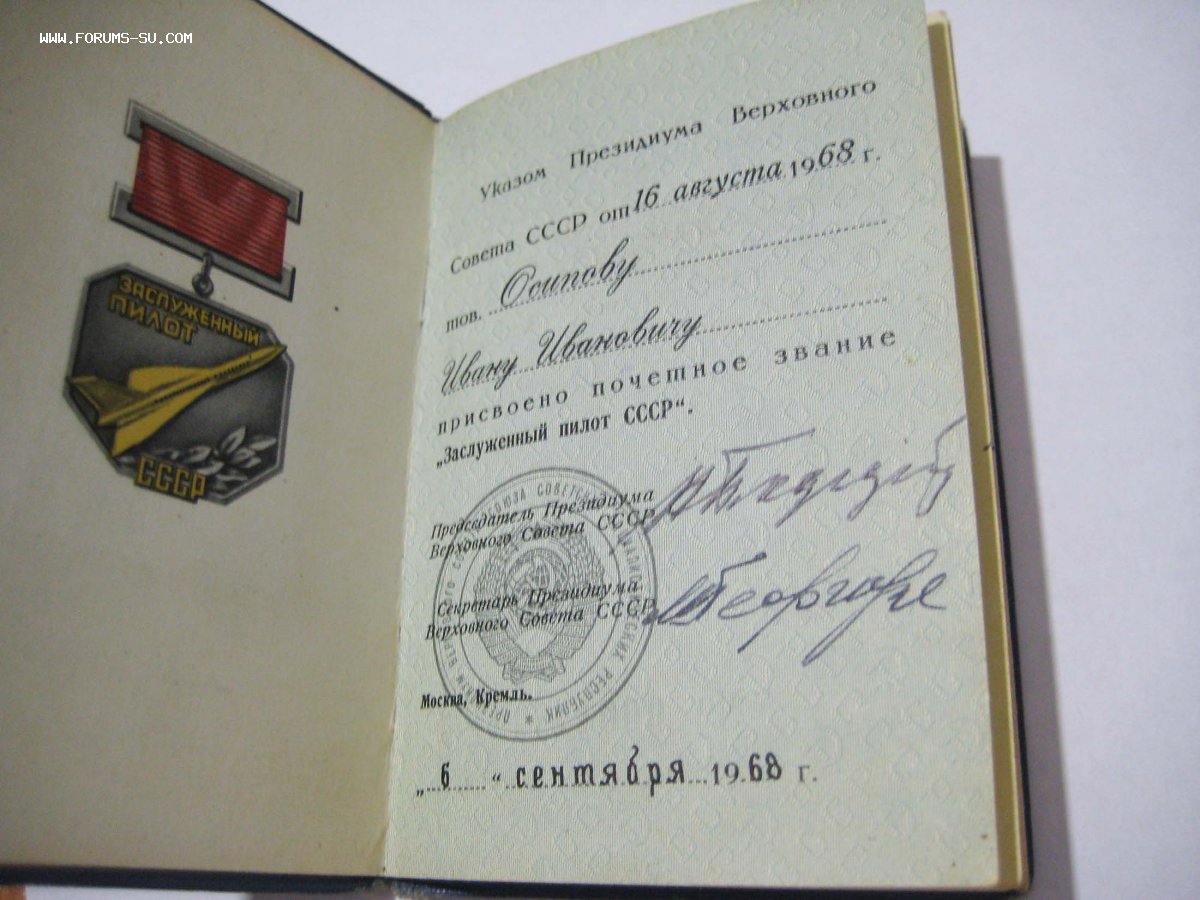 WWW.FORUMS-SU.COM
ЗАСЛУЖЕННЫЙ
ПИЛОТ
СССР
Указом Президиума Верховного
Совета СССР от 16 августа 1968 г.
тов. Осипову
Ивану Ивановичу
присвоено почетное звание
„Заслуженный пилот СССР“.
Председатель Президиума
Верховного Совета СССР
Секретарь Президиума
Верховного Совета СССР
Москва, Кремль.
„6“ сентября 1968 г.